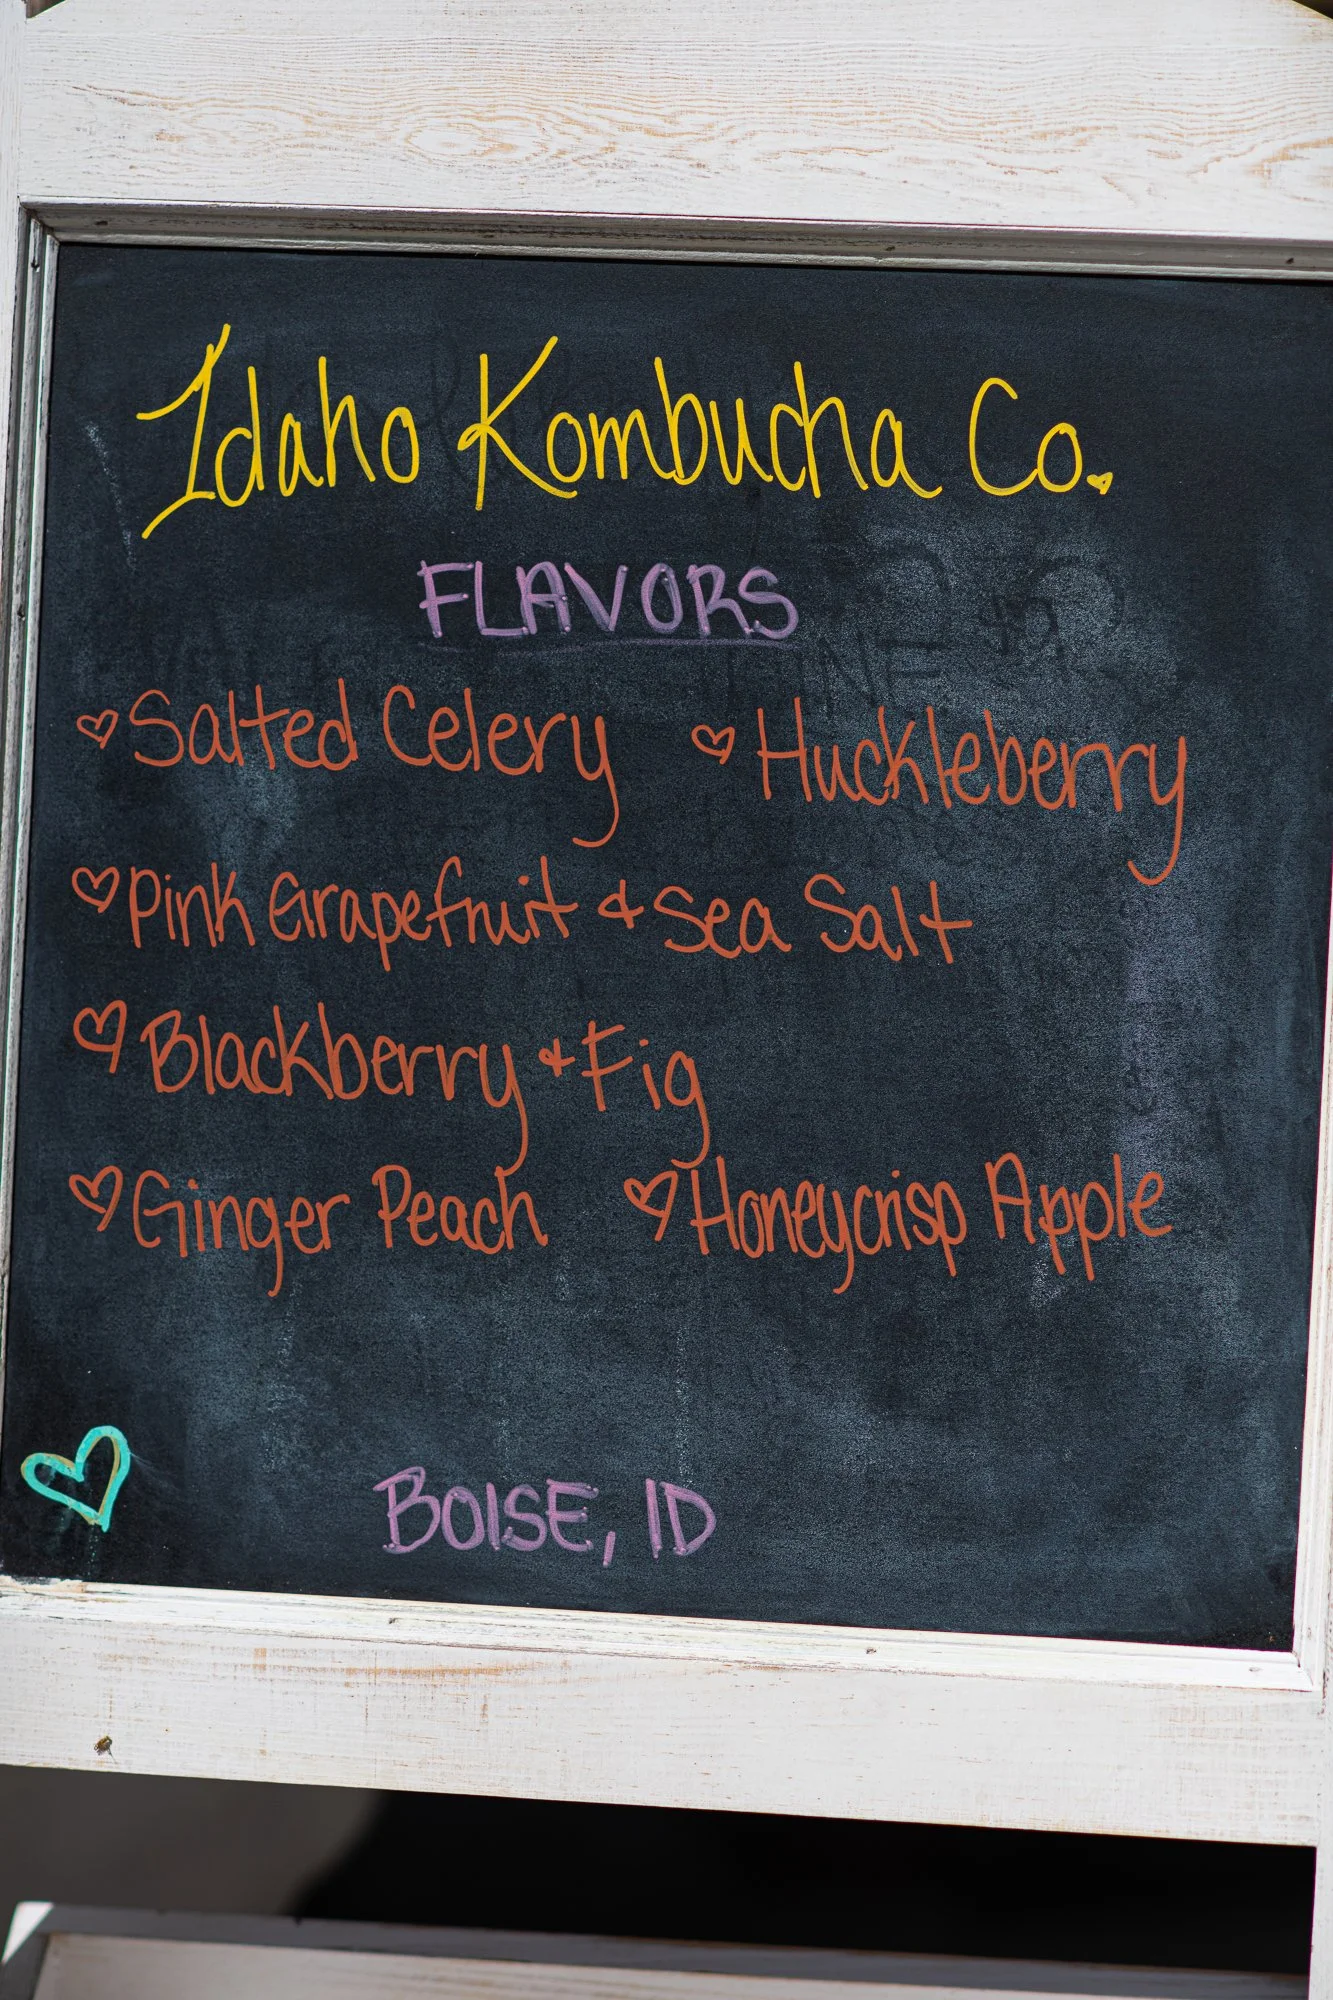 Idaho Kombucha Co.
FLAVORS
Salted Celery Huckleberry
Pink Grapefruit & Sea Salt
Blackberry + Fig
Ginger Peach Honeycrisp Apple
BOISE, ID